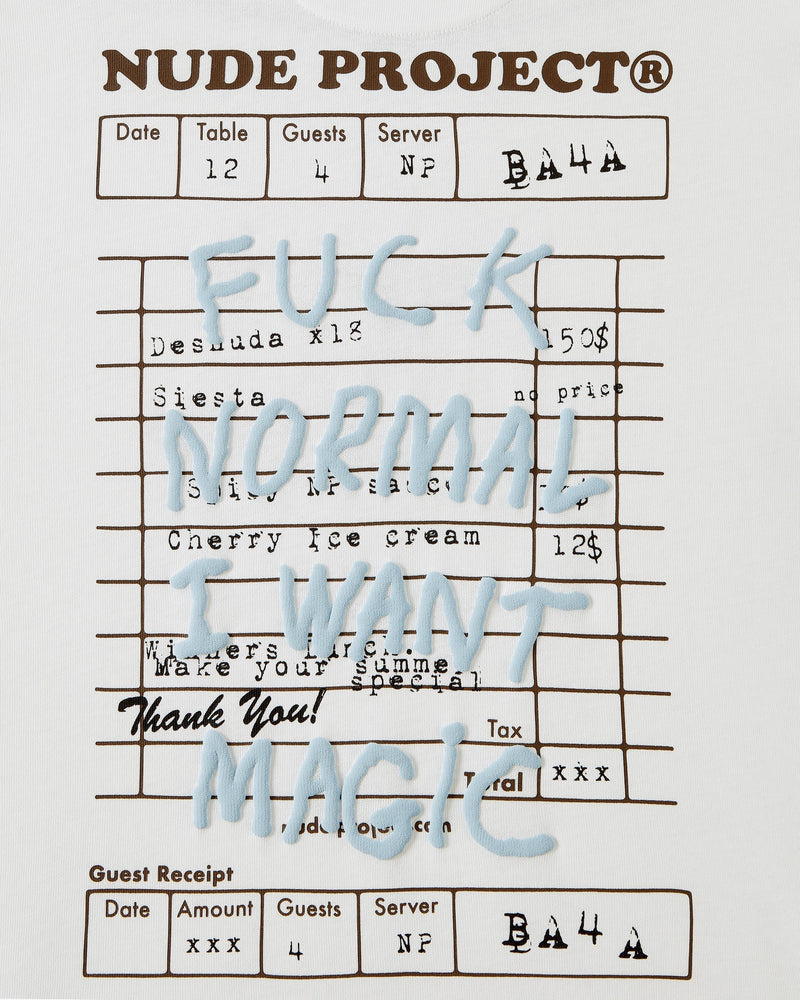 NUDE PROJECT®
Date Table Guests Server BA4A
12 4 NP
FUCK
Desnuda x18 150$
Siesta no price
NORMAL
Spicy NP sauce
Cherry Ice cream 12$
I WANT
Winners Lunch.
Make your summe
special
Thank You!
Tax
MAGIC
Total xxx
nudeproject.com
Guest Receipt
Date Amount Guests Server BA4A
xxx 4 NP